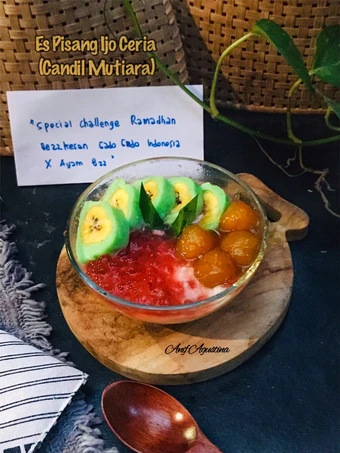 Es Pisang Ijo Ceria
(Candil Mutiara)
"Special Challenge Ramadhan
Bezzheran Cado Cado Indonesia
X Ayam Bzz"
Anif Agustina